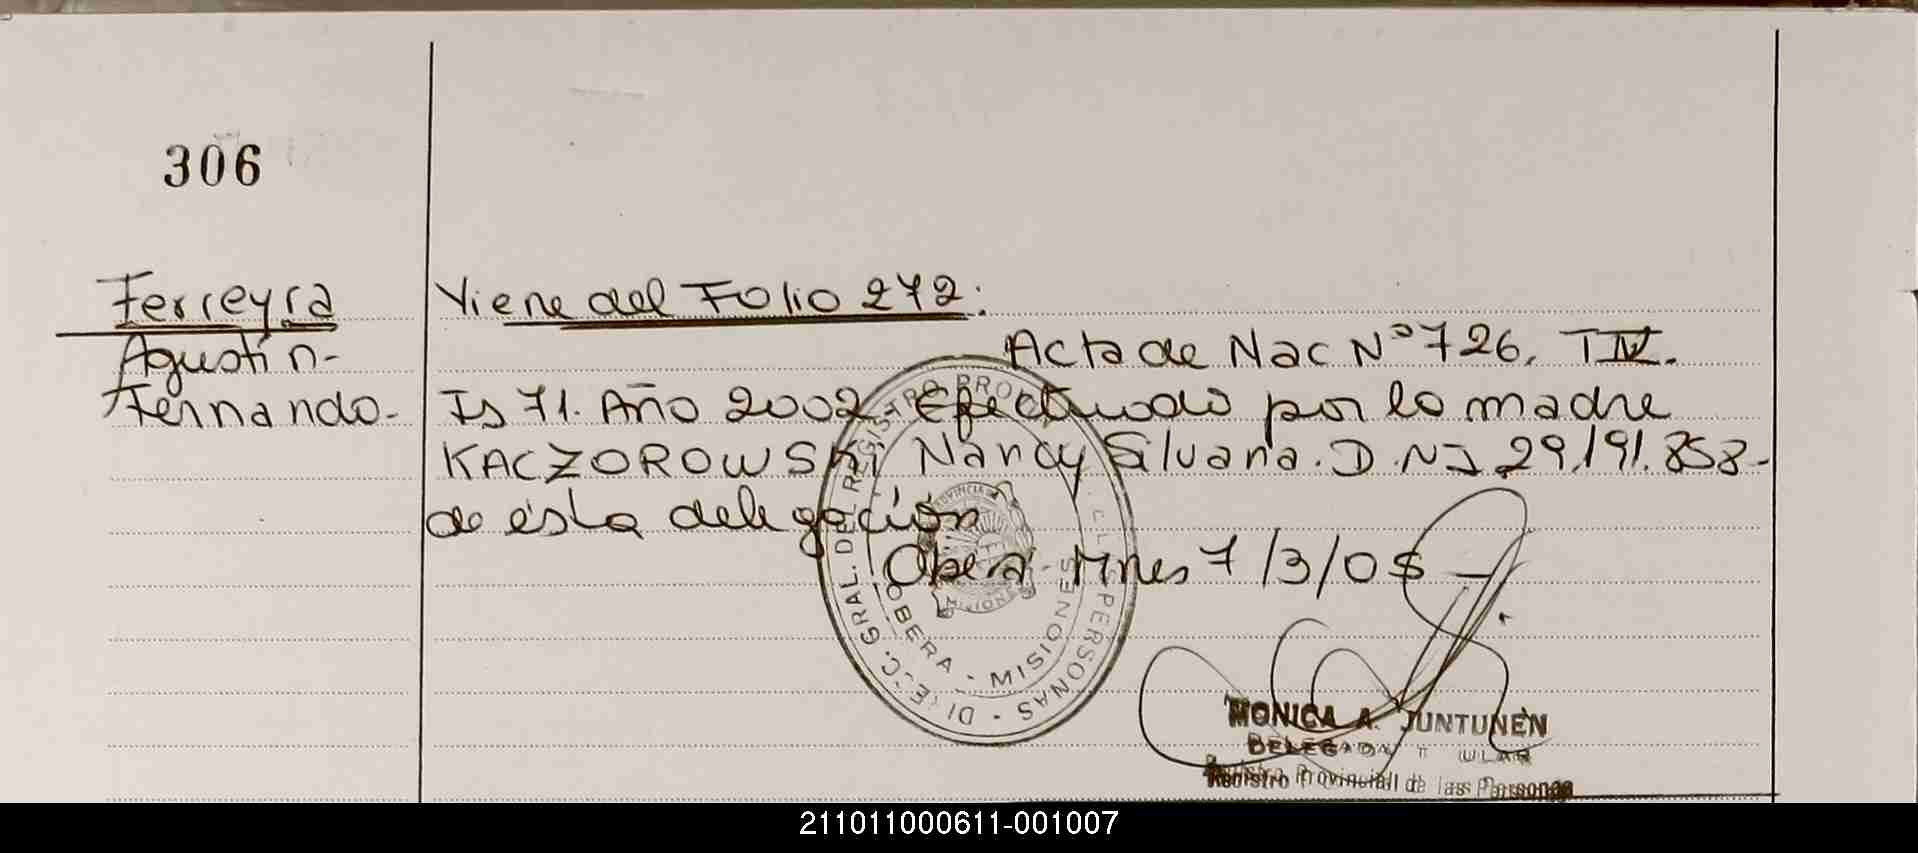 306
Ferreyra
Agustín-
Fernando-
Viene del Folio 272.
Acta de Nac Nº 726. T IV.
Fs 71. Año 2002. Efectuado por la madre
KACZOROWSKi Nancy Silvana. D.NI 29.191.858-
de ésta delegación
Oberá. Mnes 7/3/05
DIREC. GRAL. DEL REGISTRO PROV. PERSONAS
OBERA - MISIONES
PROVINCIA
MISIONES
MONICA A. JUNTUNEN
DELEGADA TITULAR
Registro Provincial de las Personas
211011000611-001007